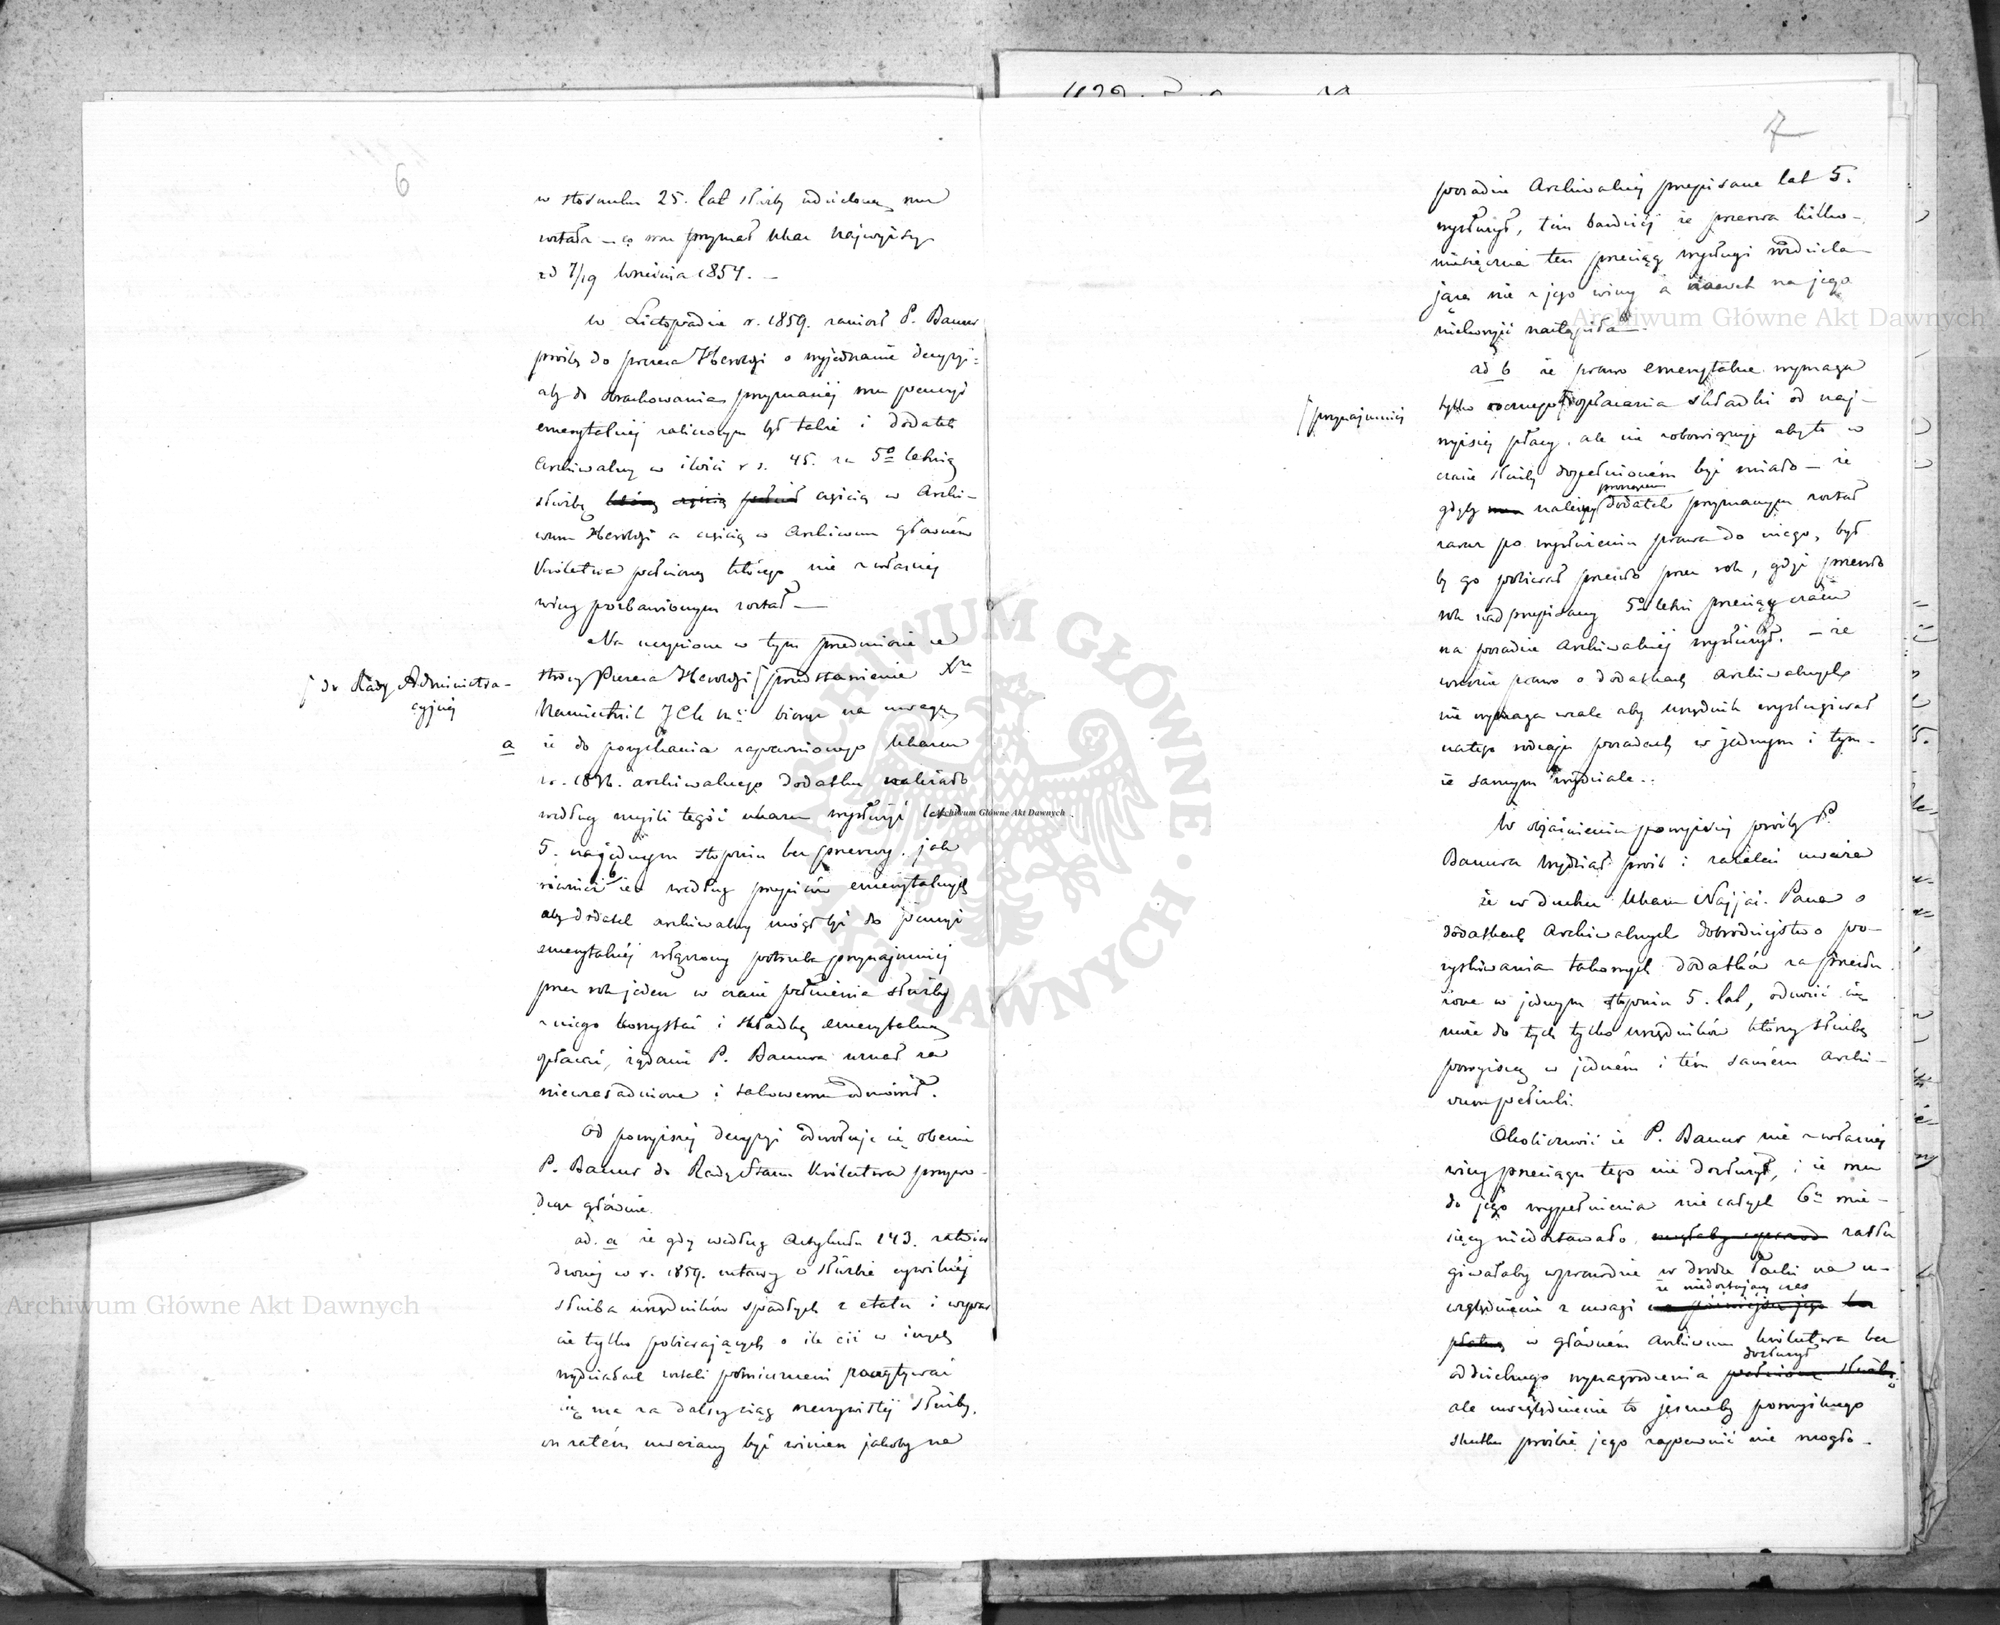 6
w stosunku 25. lat służby udzieloną mu
została — co mu przyznał Ukaz Najwyższy
z d 7/19 Września 1854. —
W Listopadzie r. 1859. zaniósł P. Bauer
prośbę do prezesa Heroldyi o wyjednanie decyzyi
aby do obrachowania przyznanej mu pensyi
emerytalnej zaliczonym był także i dodatek
Archiwalny w ilości r s. 45. za 5o letnią
służbę częścią w Archi-
wum Heroldyi a częścią w Archiwum głównem
Królestwa pełnioną którego nie z własnej
winy pozbawionym został —
Na uczynione w tym przedmiocie ze
strony Prezesa Heroldyi przedstawienie
do Rady Administra-
cyjnej
Namiestnik biorąc na uwagę
a że do pozyskania zapewnionego Ukazem
r. 1836. archiwalnego dodatku należało
według myśli tegoż ukazu wysłużyć lat
5. na jednym stopniu bez przerwy, jak
również że według przepisów emerytalnych
aby dodatek archiwalny mógł być do pensyi
emerytalnej włączony potrzeba przynajmniej
przez rok jeden w czasie pełnienia służby
z niego korzystać i składkę emerytalną
opłacać, żądanie P. Bauera uznał za
nieuzasadnione i takowemu odmówił.
Od powyższej decyzyi odwołuje się obecnie
P. Bauer do Rady Stanu Królestwa przywo-
dząc głównie.
ad. a że gdy według Artykułu 143. zatwier
dzonej w r. 1859. ustawy o służbie cywilnej
służba urzędników spadłych z etatu i wspar
cie tylko pobierających o ile ci w innych
wydziałach zostali pomieszczeni poczytywać
się ma za dalszy ciąg rzeczywistej służby,
on zatem uważany być winien jakoby na
7
posadzie Archiwalnej przepisane lat 5.
wysłużył, tem bardziej że przerwa kilko-
miesięczna ten przeciąg wysługi rozdziela-
jąca nie z jego winy a nawet na jego
niekorzyść nastąpiła.
ad b że prawo emerytalne wymaga
tylko rocznego opłacania składki od naj-
przynajmniej
wyższej płacy, ale nie zobowiązuje aby to w
czasie służby dopełnionem być miało — że
gdyby należny pomieniony dodatek przyznanym został
zaraz po wysłużeniu prawa do niego, był
by go pobierał przeszło przez rok, gdyż przeszło
rok nad przepisany 5o letni przeciąg czasu
na posadzie Archiwalnej wysłużył. — że
wreszcie prawo o dodatkach Archiwalnych
nie wymaga wcale aby urzędnik wysługiwał
na tego rodzaju posadach w jednym i tym-
że samym wydziale.
W objaśnieniu powyższej prośby P.
Bauera Wydział próśb i zażaleń uważa
że w duchu Ukazu Najjaś. Pana o
dodatkach Archiwalnych dobrodziejstwo po-
zyskiwania takowych dodatków za przesłu
żone w jednym stopniu 5. lat, odnosić się
może do tych tylko urzędników którzy służbę
powyższą w jednem i tem samem Archi-
wum pełnili.
Okoliczność że P. Bauer nie z własnej
winy przeciągu tego nie dosłużył, i że mu
do jego wypełnienia nie całych 6u mie-
sięcy niedostawało, zasłu
giwałaby wprawdzie w drodze łaski na u-
względnienie z uwagi że niedostający czas
w głównem Archiwum Królestwa bez
oddzielnego wynagrodzenia dosłużył
ale uwzględnienie to jeszcze by pomyślnego
skutku prośbie jego zapewnić nie mogło.
Archiwum Główne Akt Dawnych
Archiwum Główne Akt Dawnych
Archiwum Główne Akt Dawnych
ARCHIWUM GŁÓWNE AKT DAWNYCH